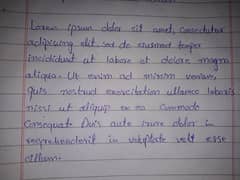 Lorem ipsum dolor sit amet, consectetur
adipiscing elit sed do eiusmod tempor
incididunt ut labore et dolore magna
aliqua. Ut enim ad minim veniam,
quis nostrud exercitation ullamco laboris
nissi ut aliquip ex ea commodo
Consequate Duis aute irure dolor in
reeprehenderit in voluptate velt esse
cillum.